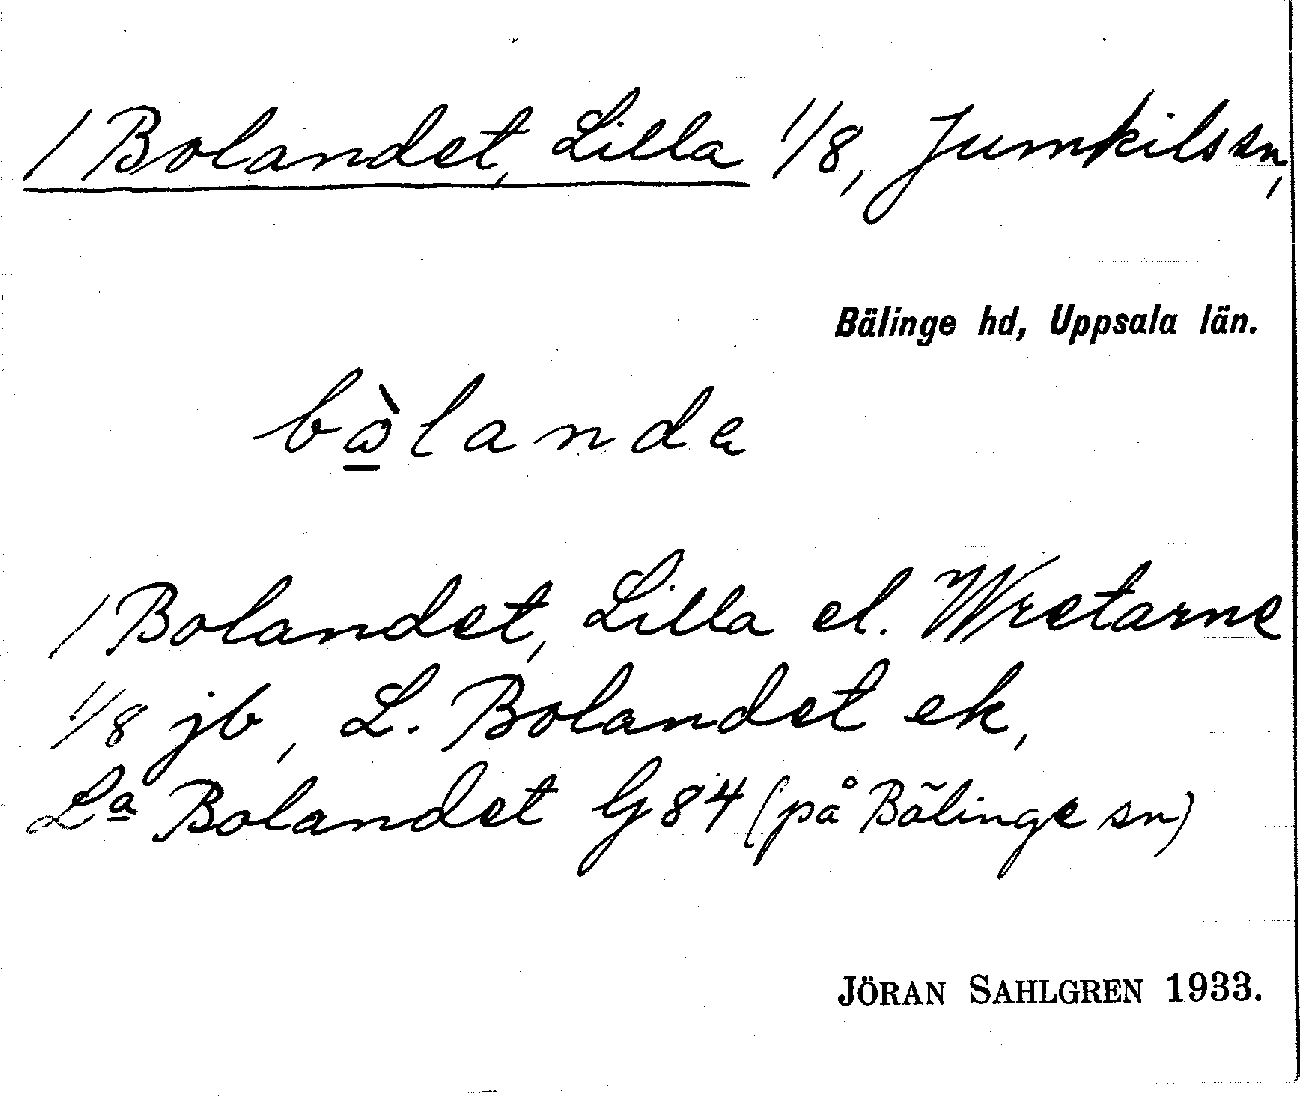 1 Bolandet, Lilla 1/8, Jumkils sn,
Bälinge hd, Uppsala län.
bὼ̲landa
1 Bolandet, Lilla el. Wretarne
1/8 jb, L. Bolandet ek,
La Bolandet G 84 (på Bälinge sn)
JÖRAN SAHLGREN 1933.